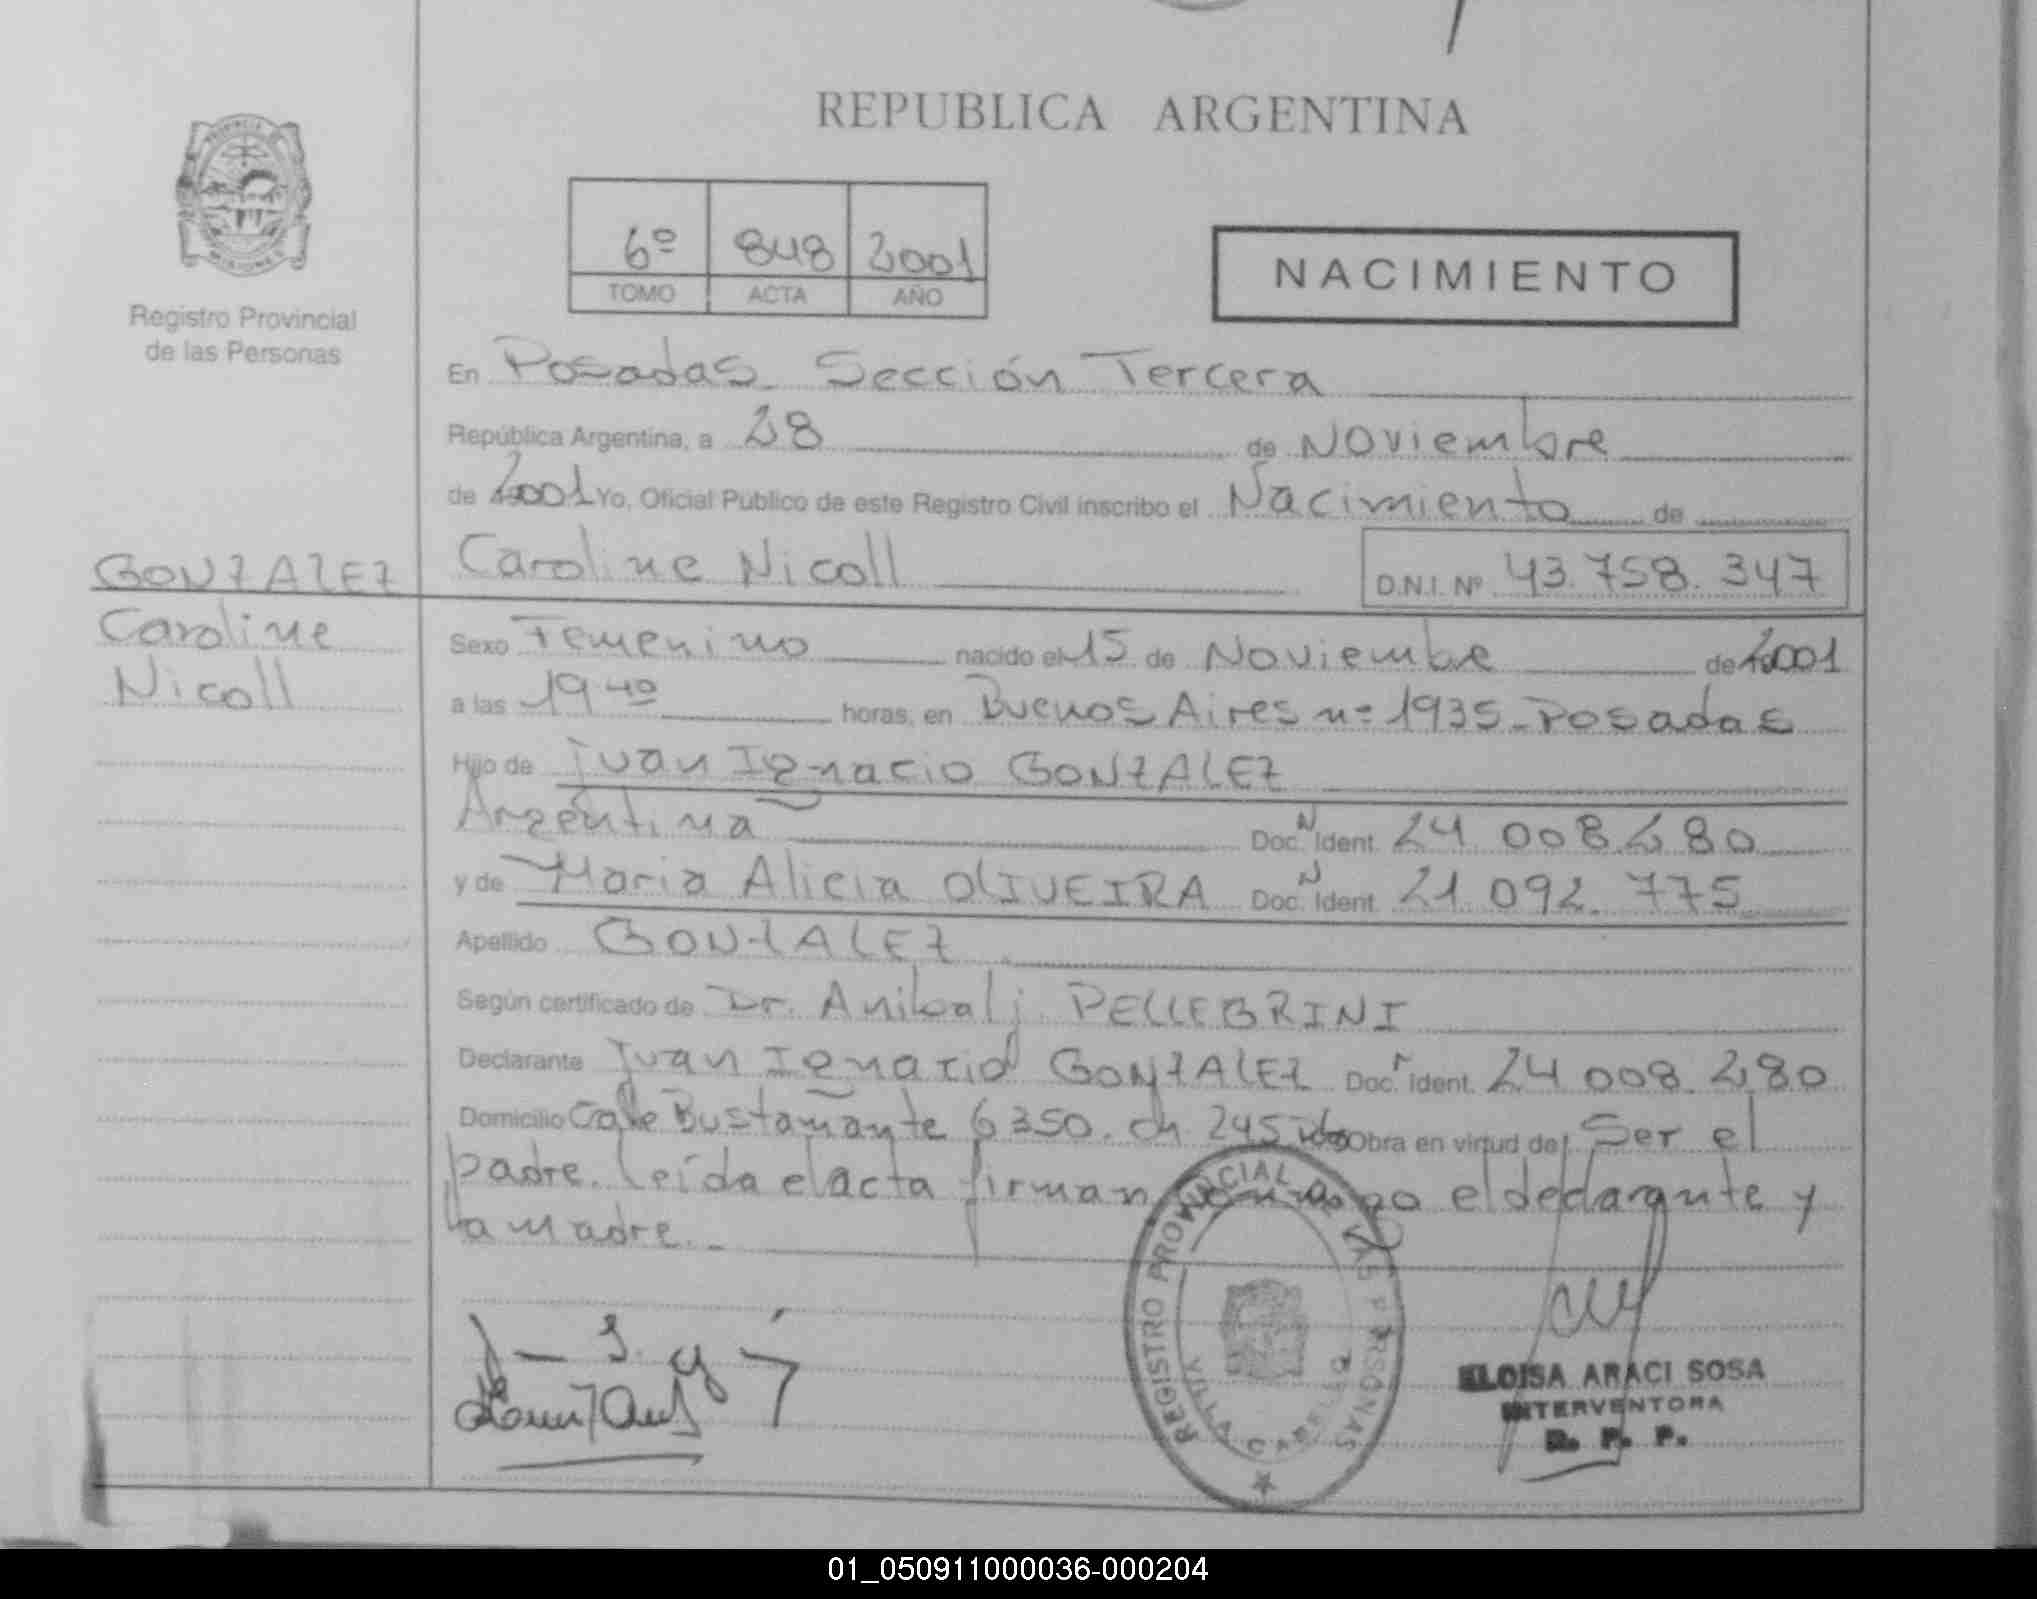 REPUBLICA ARGENTINA
PROVINCIA
MISIONES
Registro Provincial
de las Personas
6º 848 2001
TOMO ACTA AÑO
NACIMIENTO
En Posadas Sección Tercera
República Argentina, a 28 de Noviembre
de 2001 Yo, Oficial Público de este Registro Civil inscribo el Nacimiento de
GONZALEZ
Caroline
Nicoll
Caroline Nicoll D.N.I. Nº 43.758.347
Sexo Femenino nacido el 15 de Noviembre de 2001
a las 19 40 horas, en Buenos Aires nº 1935 - Posadas
Hijo de Juan Ignacio GONZALEZ
Argentina Doc. N Ident. 24 008 280
y de Maria Alicia OLIVEIRA Doc. N Ident. 21 092. 775
Apellido GONZALEZ
Según certificado de Dr. Anibal J. PELLEGRINI
Declarante Juan Ignacio GONZALEZ Doc. Ident. 24 008. 280
Domicilio Calle Bustamante 6350. ch 245 Obra en virtud de Ser el
padre. Leída el acta firman conmigo el declarante y
la madre.-
REGISTRO PROVINCIAL DE LAS PERSONAS
VILLA CABELLO
ELOISA ARACI SOSA
INTERVENTORA
R. P. P.
01_050911000036-000204